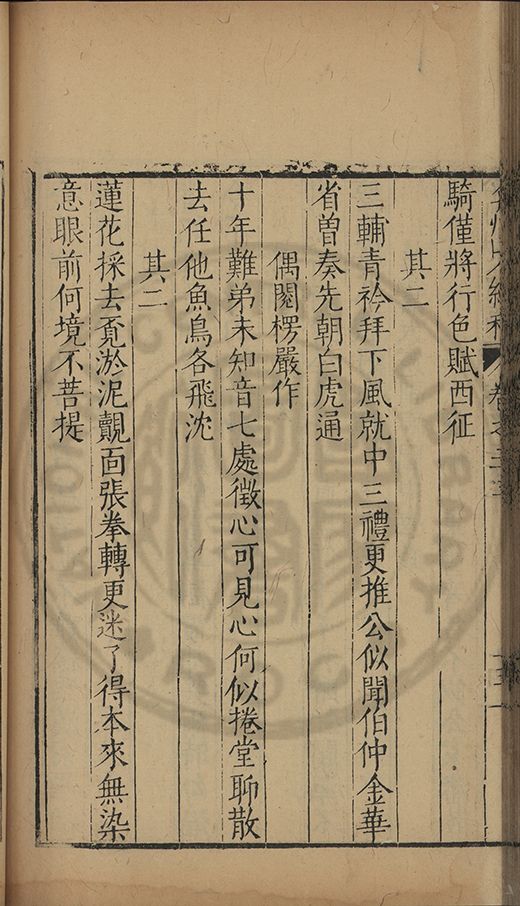 騎僅將行色賦西征
其二
三輔青衿拜下風就中三禮更推公似聞伯仲金華
省曽奏先朝白虎通
偶閱楞嚴作
十年難弟未知音七處徵心可見心何似捲堂聊散
去任他魚鳥各飛沈
其二
蓮花採去覔淤泥覿面張拳轉更迷了得本來無染
意眼前何境不菩提